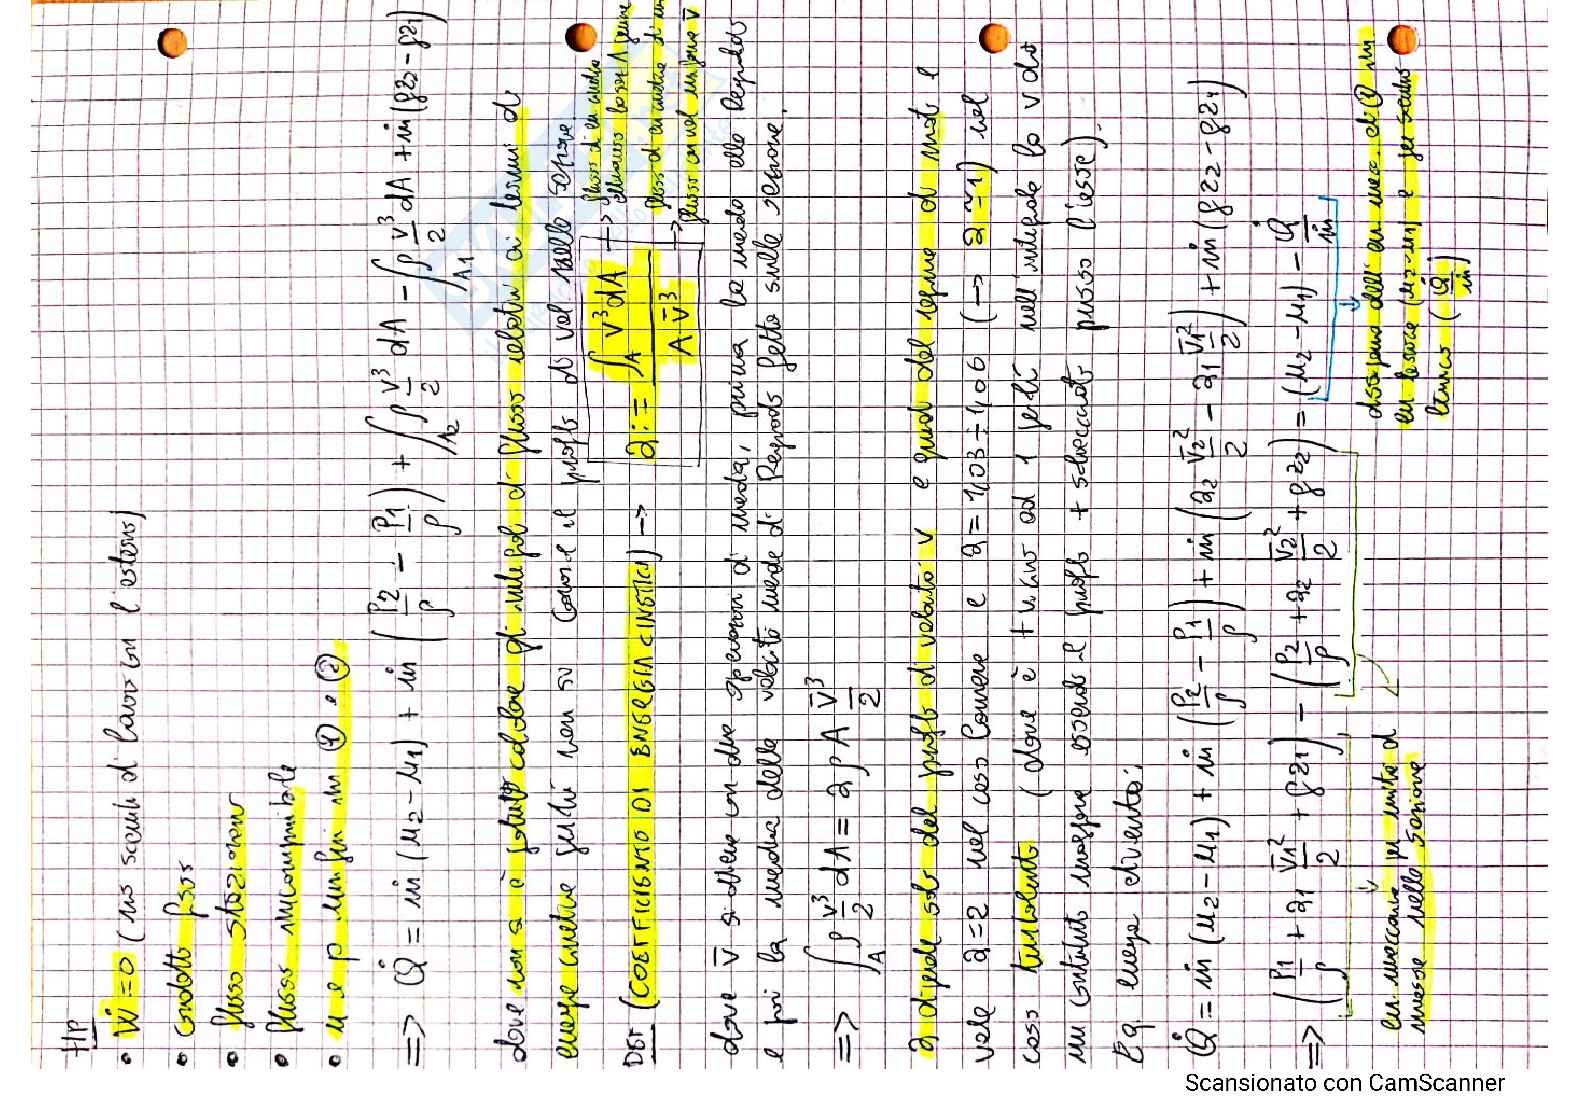 HP
• Ẇ=0 (no scambi di lavoro con l'esterno)
• condotto fisso
• flusso stazionario
• flusso incomprimibile
• u e p uniformi in ① e ②
=> Q̇ = ṁ (u2 - u1) + ṁ (p2/ρ - p1/ρ) + ∫∫A2 ρ v³/2 dA - ∫∫A1 ρ v³/2 dA + ṁ (gz2 - gz1)
dove non si è potuto calcolare gli integrali di flusso relativi ai termini di
energia cinetica perché non so come è il profilo di vel nelle sezione.
DEF (COEFFICIENTO DI ENERGIA CINETICA) -> α := ∫A v³ dA / A v̄³
-> flusso di en cinetica
flusso di en cinetica di un
-> flusso con vel uniforme v̄
dove v̄ si ottiene con due operazioni di media, prima la media alla Reynolds
e poi la media della velocità media di Reynolds fatta sulla sezione.
=> ∫∫A ρ v³/2 dA = α ρ A v̄³/2
α dipende solo dal profilo di velocità v e quindi dal regime di moto e
vale α=2 nel caso laminare e α=1,03÷1,06 (-> α≈1) nel
caso turbolento (dove è + vicino ad 1 perché nell'integrale la v dà
un contributo maggiore essendo il profilo + schiacciato presso l'asse).
Eq. energia diventa:
Q̇ = ṁ (u2 - u1) + ṁ (p2/ρ - p1/ρ) + ṁ (α2 v̄2²/2 - α1 v̄1²/2) + ṁ (gz2 - gz1)
=> (p1/ρ + α1 v̄1²/2 + gz1) - (p2/ρ + α2 v̄2²/2 + gz2) = (u2 - u1) - Q̇/ṁ
en. meccanica per unità di
massa nella sezione
dissipazione dell'en mecc. di ① in
en. interna (u2-u1) e per scambio
termico (Q̇/ṁ)
Scansionato con CamScanner